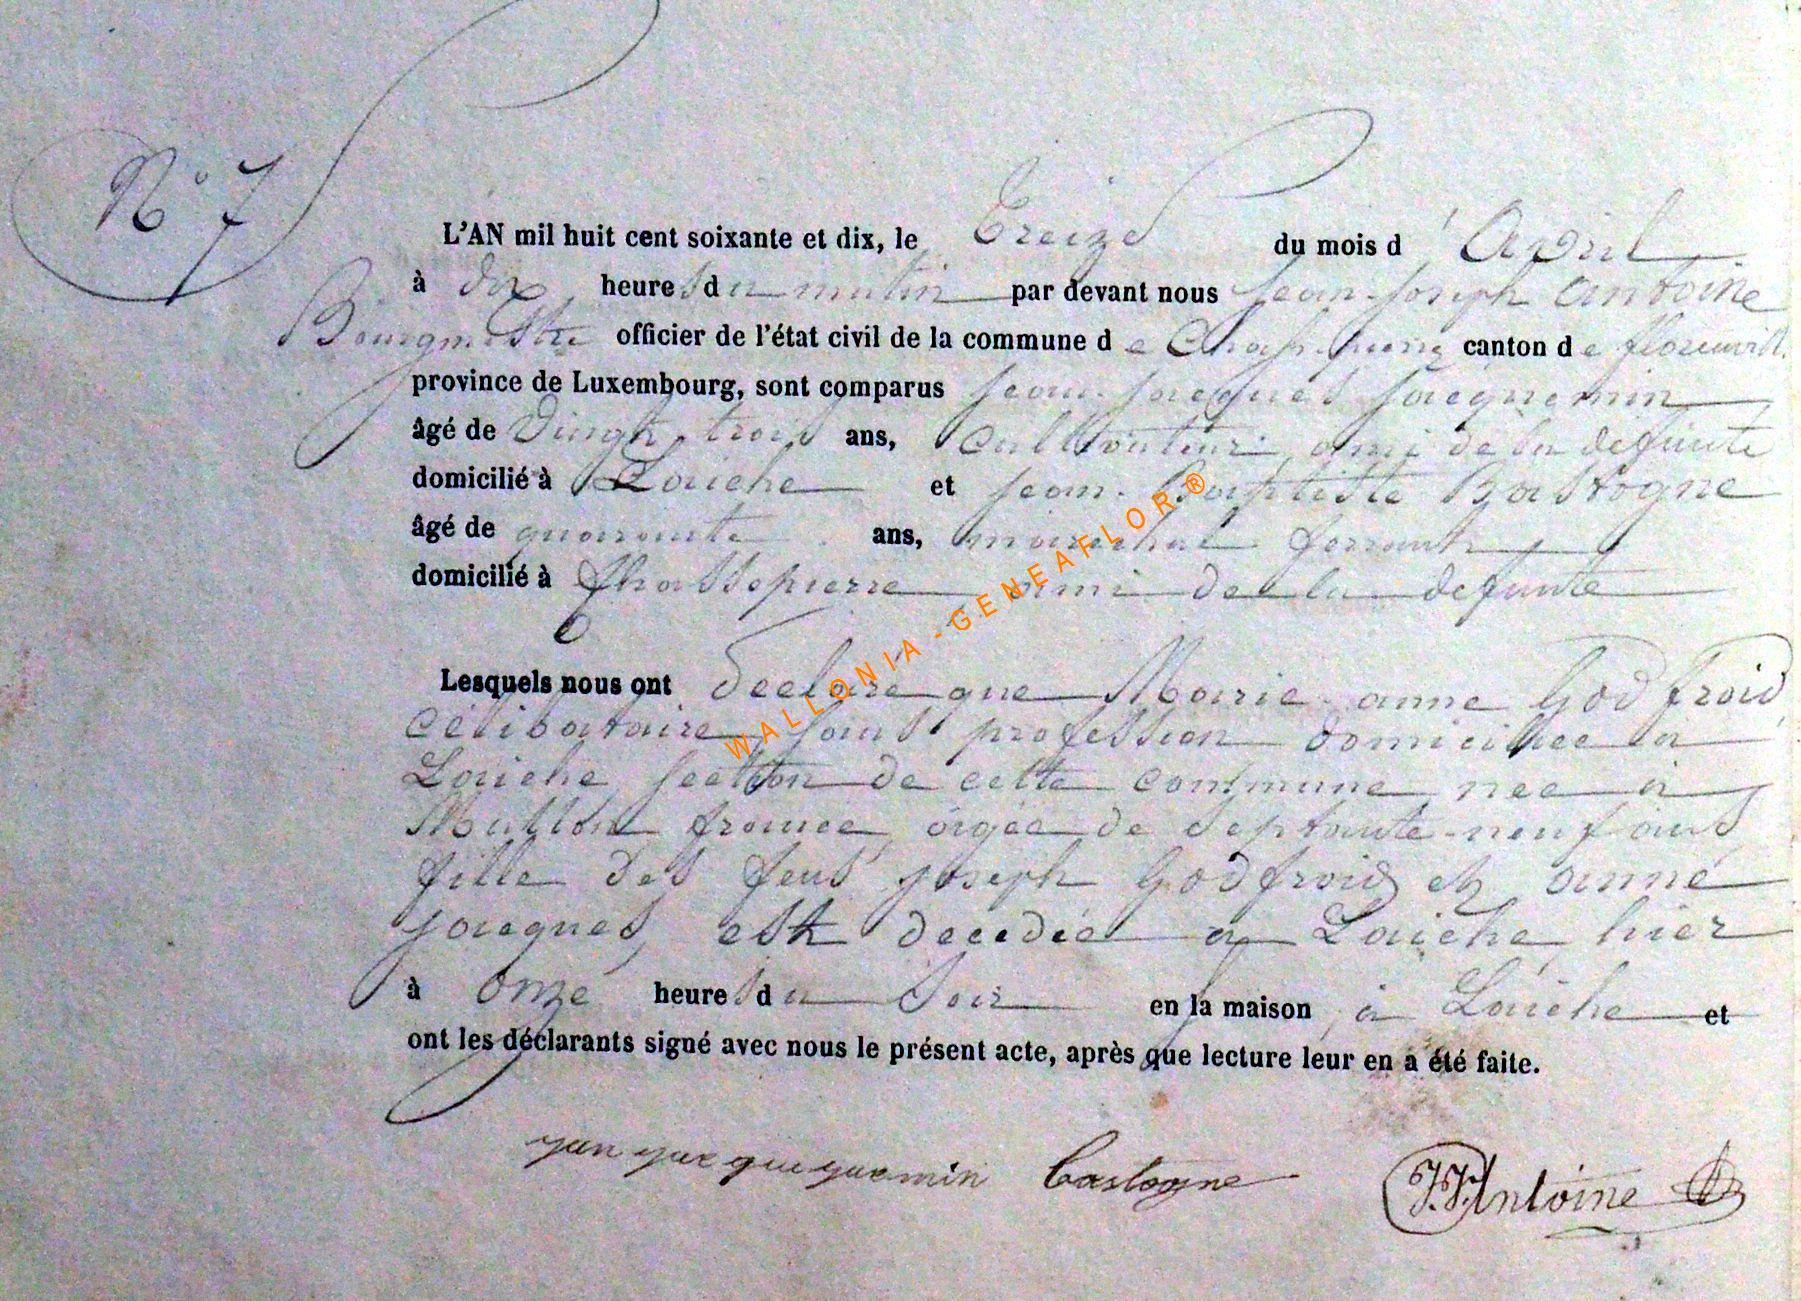 N° 7
L'AN mil huit cent soixante et dix, le Treize du mois d'Avril
à dix heures du matin par devant nous Jean-Joseph Antoine
Bourgmestre officier de l'état civil de la commune de canton de florenvill
province de Luxembourg, sont comparus Jean-Jacques Jacquemin
âgé de Vingt-trois ans, Cultivateur, ami de la defunte
domicilié à Laiche et Jean-Baptiste Bastogne
âgé de quarante ans, marechal ferrant
domicilié à Chassepierre ami de la defunte
Lesquels nous ont declaré que Marie-anne Godfroid,
célibataire, sans profession domiciliée à
Laiche section de cette commune née à
france, agée de septante-neuf ans
fille des feus Joseph Godfroid et anne
Jacques, est decedée a Laiche, hier
à onze heures du soir en la maison à Laiche et
ont les déclarants signé avec nous le présent acte, après que lecture leur en a été faite.
Bastogne J.J. Antoine
WALLONIA - GENEAFLOR®